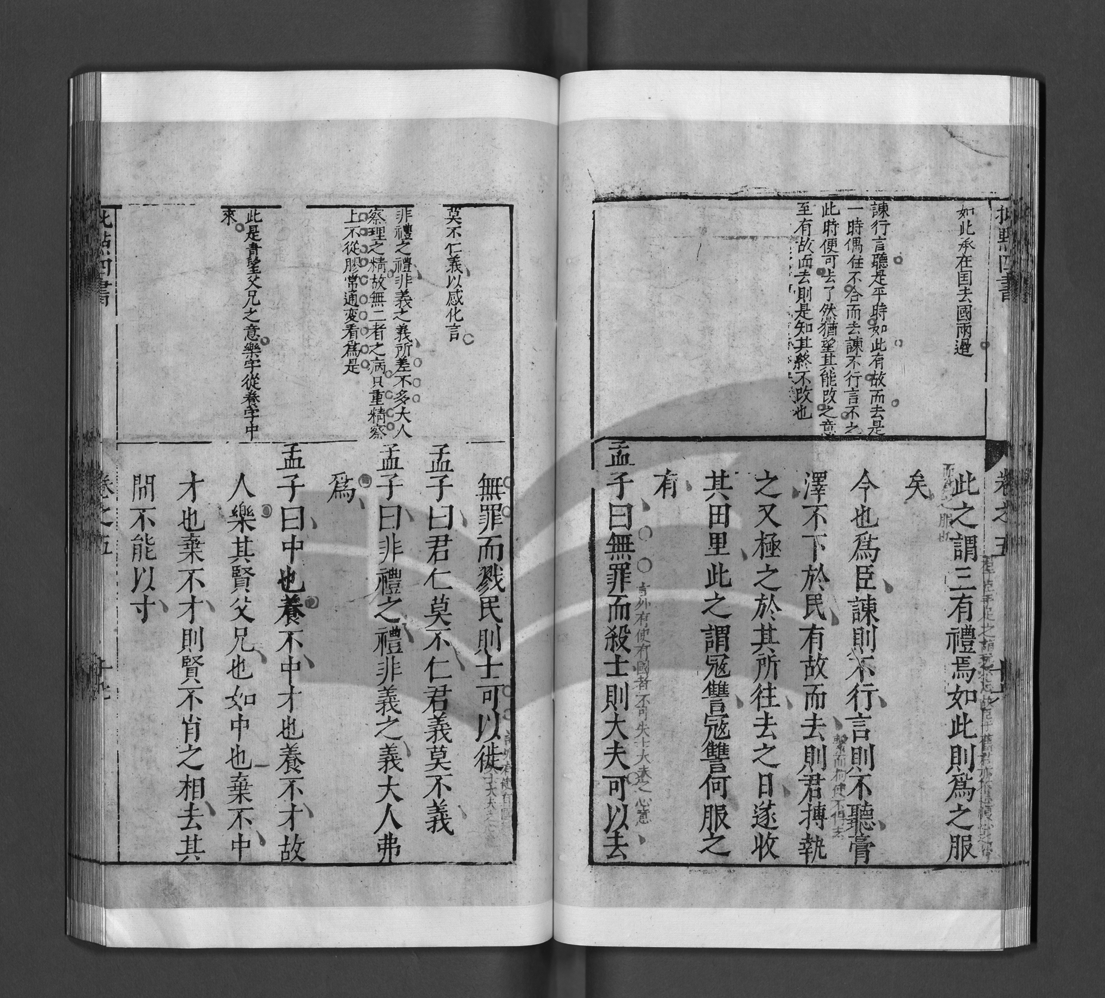 如此承在囯去國兩邊
諫行言聽是平時如此有故而去是
一時偶値不合而去諫不行言不之
此時便可去了然猶望其能改之意
至有故而去則是知其終不改也
此之謂三有禮焉如此則爲之服
矣
今也爲臣諫則不行言則不聽膏
澤不下於民有故而去則君搏執
之又極之於其所往去之日遂收
其田里此之謂寇讐寇讐何服之
有
言外有使有國者不可失士大夫之心意
孟子曰無罪而殺士則大夫可以去
卷之五
莫不仁義以感化言
非禮之禮非義之義所差不多大人
察理之精故無二者之病只重精察
上不從膠常通変看爲是
此是責望父兄之意樂字從養字中
來
無罪而戮民則士可以徙
孟子曰君仁莫不仁君義莫不義
孟子曰非禮之禮非義之義大人弗
爲
孟子曰中也養不中才也養不才故
人樂其賢父兄也如中也棄不中
才也棄不才則賢不肖之相去其
間不能以寸
卷之五